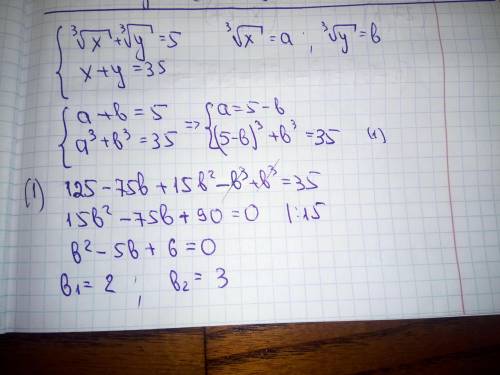 { ∛x + ∛y = 5    ∛x = a ; ∛y = b
{ x + y = 35
{ a + b = 5 => { a = 5 - b
{ a³ + b³ = 35 { (5-b)³ + b³ = 35 (1)
(1) 125 - 75b + 15b² - b³ + b³ = 35
15b² - 75b + 90 = 0 |:15
b² - 5b + 6 = 0
b₁ = 2 ; b₂ = 3